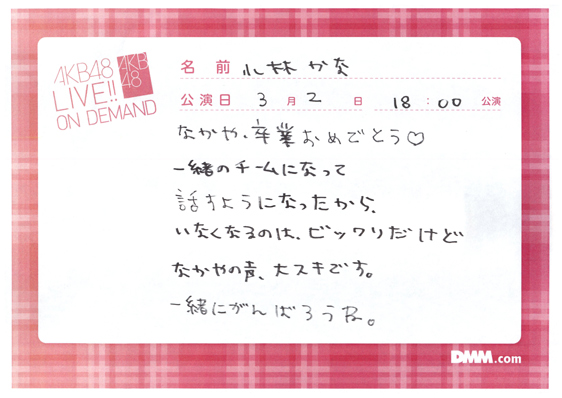 AKB48
LIVE!!
ON DEMAND
AKB
48
名 前 小林かな
公演日 3月2日 18:00 公演
なかや、卒業おめでとう♡
一緒のチームになって
話すようになったから、
いなくなるのは、ビックリだけど
なかやの声、大スキです。
一緒にがんばろうね。
DMM.com